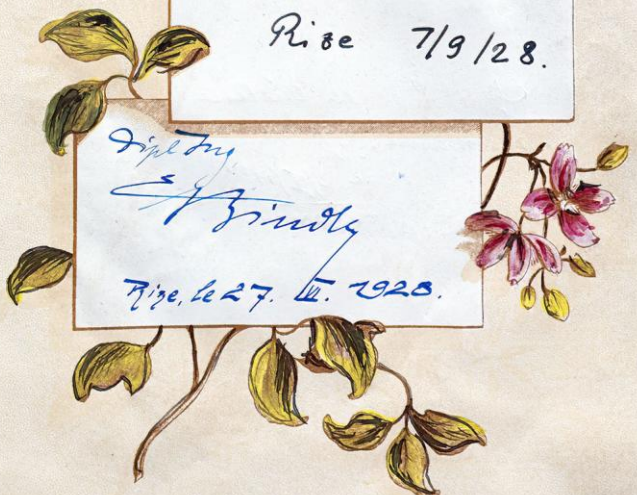 Rize 7/9/28.
Dipl Ing
Rize, le 27. IX. 1928.